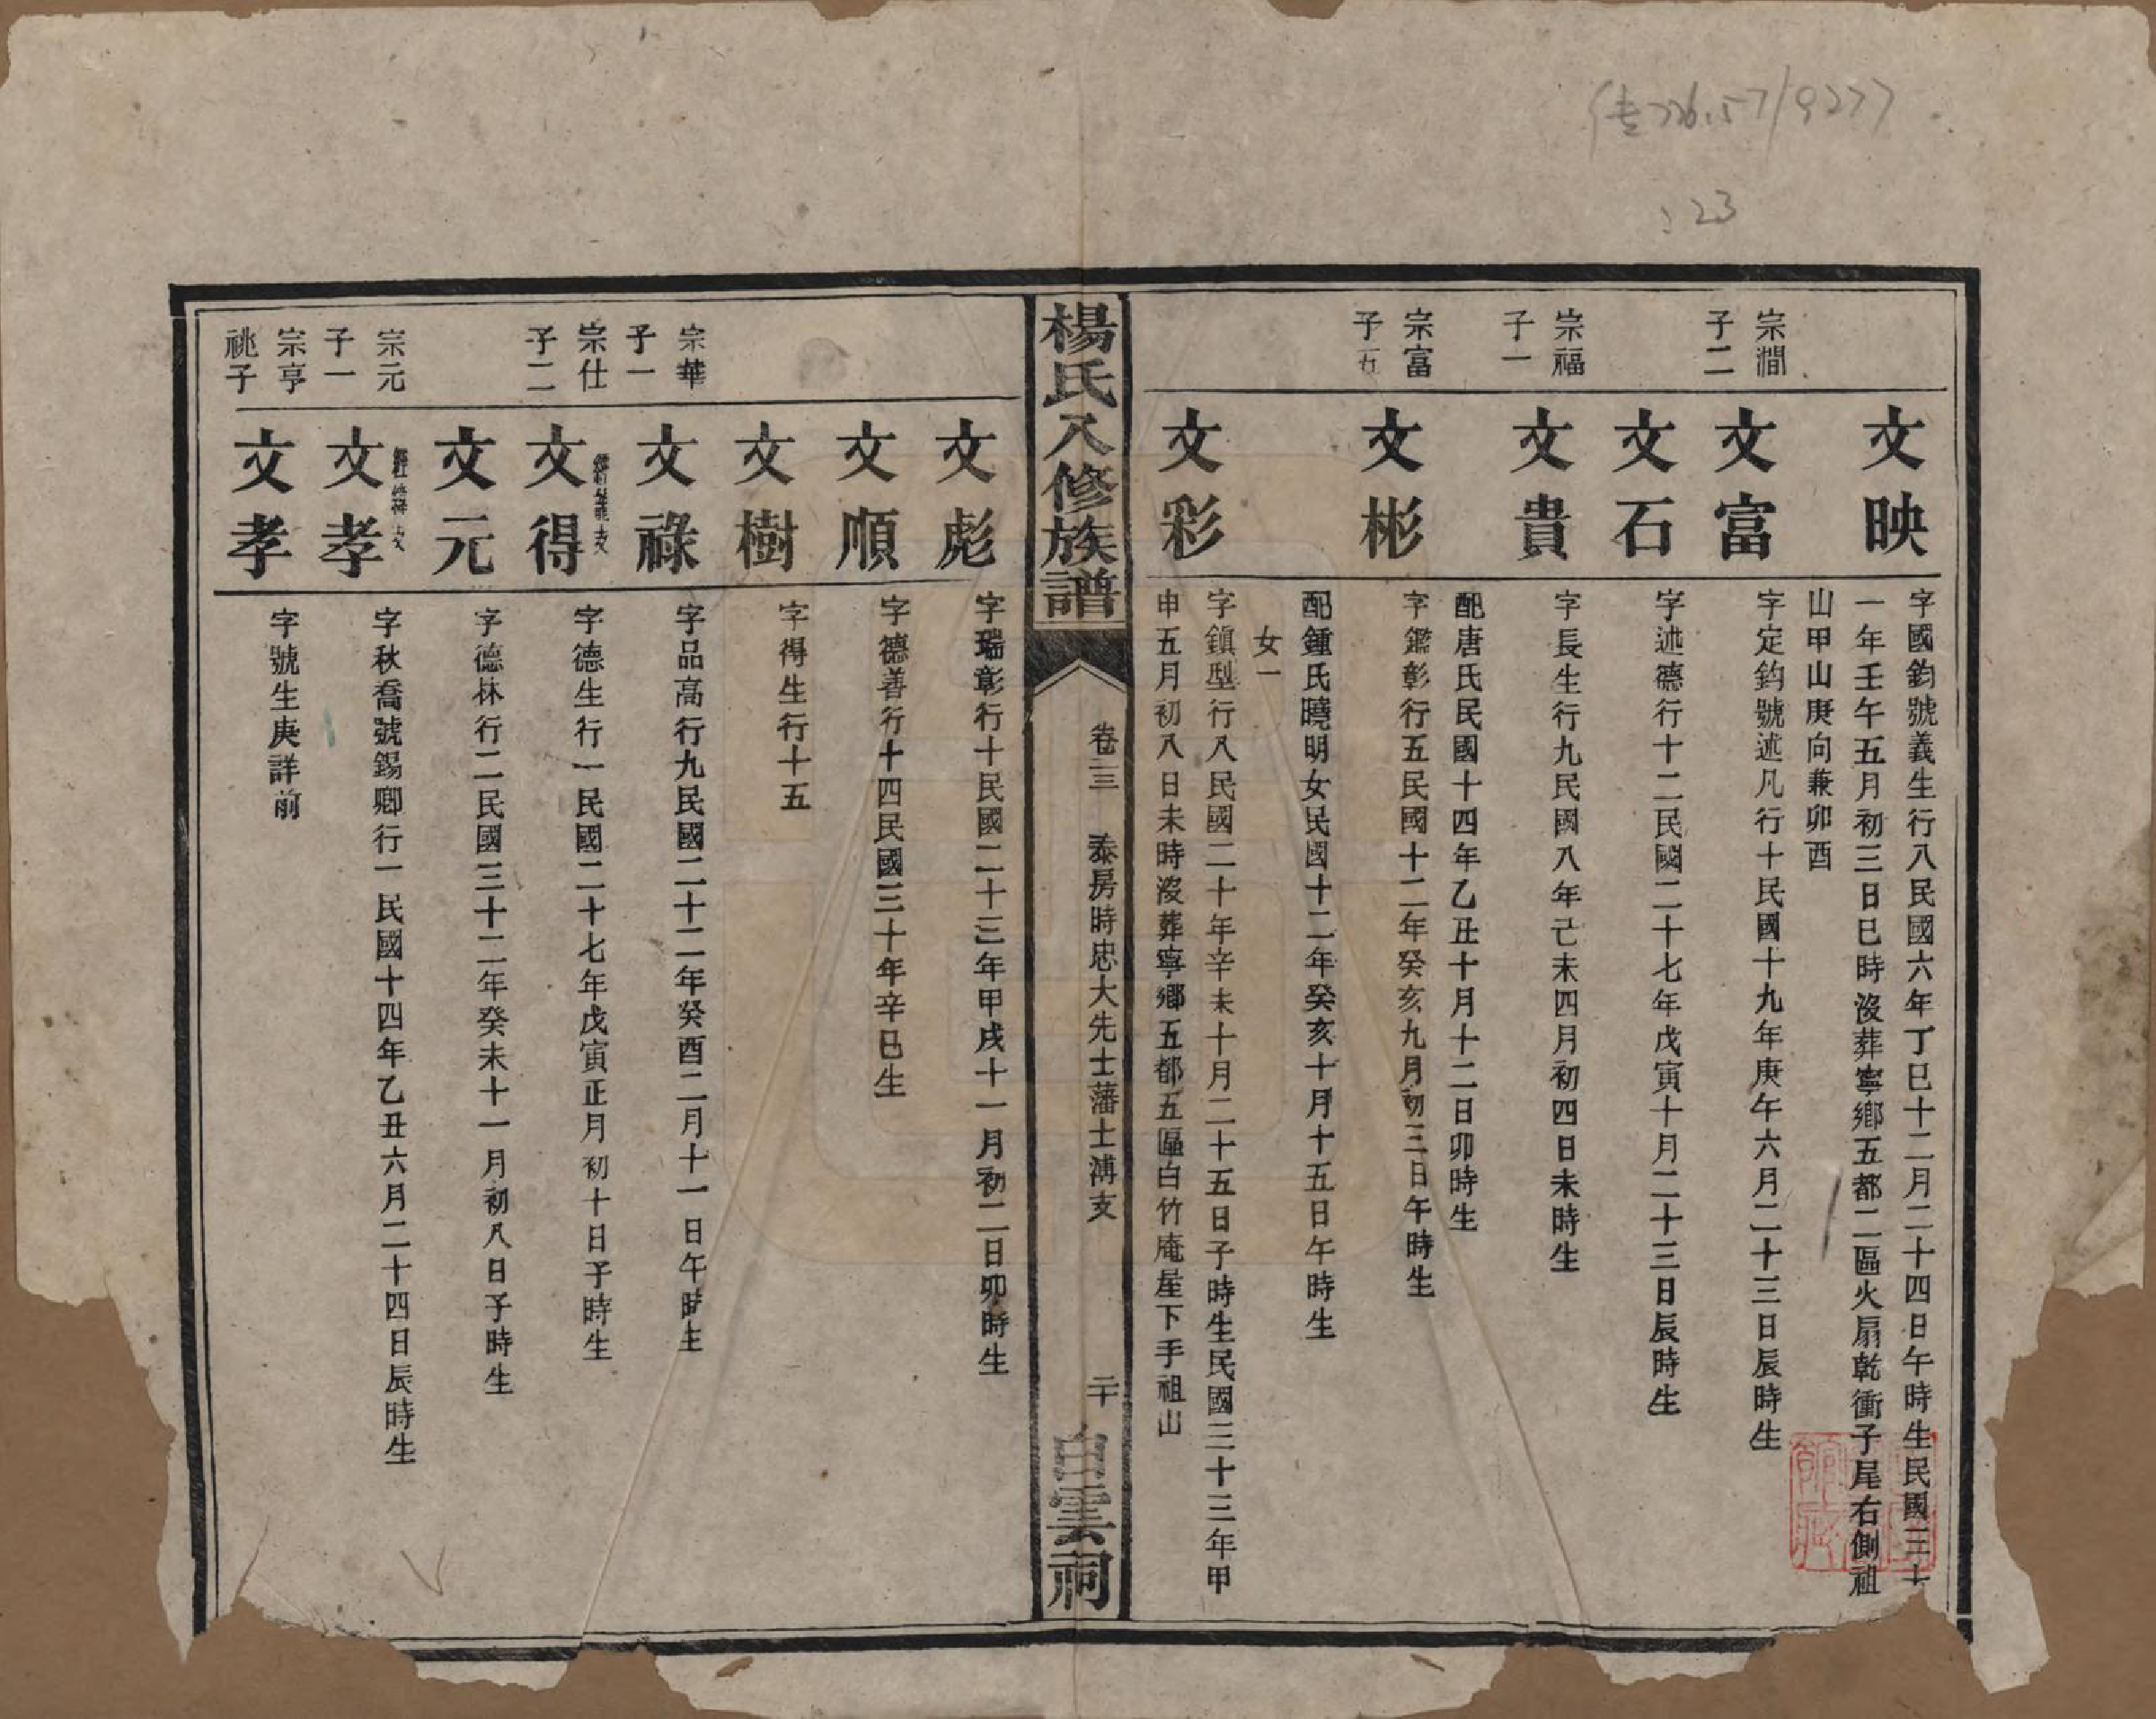 文映
字國鈞號義生行八民國六年丁巳十二月二十四日午時生民國三十
一年壬午五月初三日巳時沒葬寧鄉五都二區火扇乾衝子尾右側祖
山甲山庚向兼卯酉
宗澗
子二
文富
字定鈞號述凡行十民國十九年庚午六月二十三日辰時生
文石
字述德行十二民國二十七年戊寅十月二十三日辰時生
宗福
子一
文貴
字長生行九民國八年己未四月初四日未時生
配唐氏民國十四年乙丑十月十二日卯時生
宗富
子五
文彬
字鑑彰行五民國十二年癸亥九月初三日午時生
配鍾氏曉明女民國十二年癸亥十月十五日午時生
女一
文彩
字鎮型行八民國二十年辛未十月二十五日子時生民國三十三年甲
申五月初八日未時沒葬寧鄉五都五區白竹庵星下手祖山
楊氏八修族譜
卷三 泰房時忠大先士藩士溥支
二十
白雲祠
文彪
字瑞彰行十民國二十三年甲戌十一月初二日卯時生
文順
字德善行十四民國三十年辛巳生
文樹
字得生行十五
宗華
子一
文祿
字品高行九民國二十二年癸酉二月十一日午時生
宗仕
子二
文得
字德生行一民國二十七年戊寅正月初十日子時生
文元
字德林行二民國三十二年癸未十一月初八日子時生
宗元
子一
文孝
字秋喬號錫卿行一民國十四年乙丑六月二十四日辰時生
宗亨
祧子
文孝
字號生庚詳前